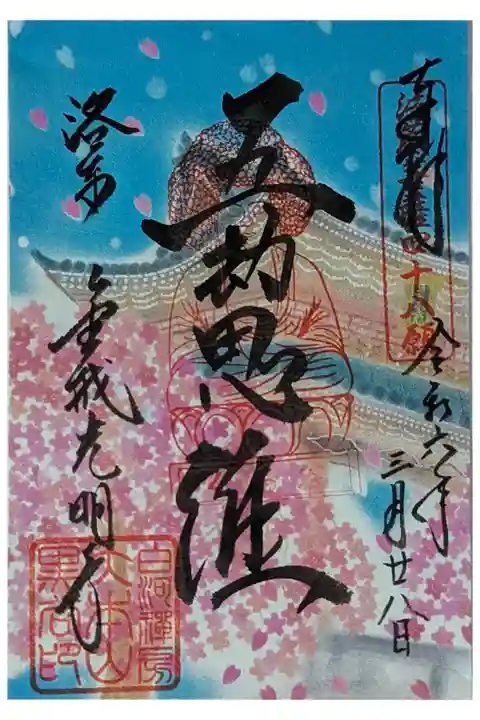 奉拝
四十八願
令和六年
三月廿八日
五劫思惟
洛東
金戒光明寺
白河禪房
大本山
黒谷印